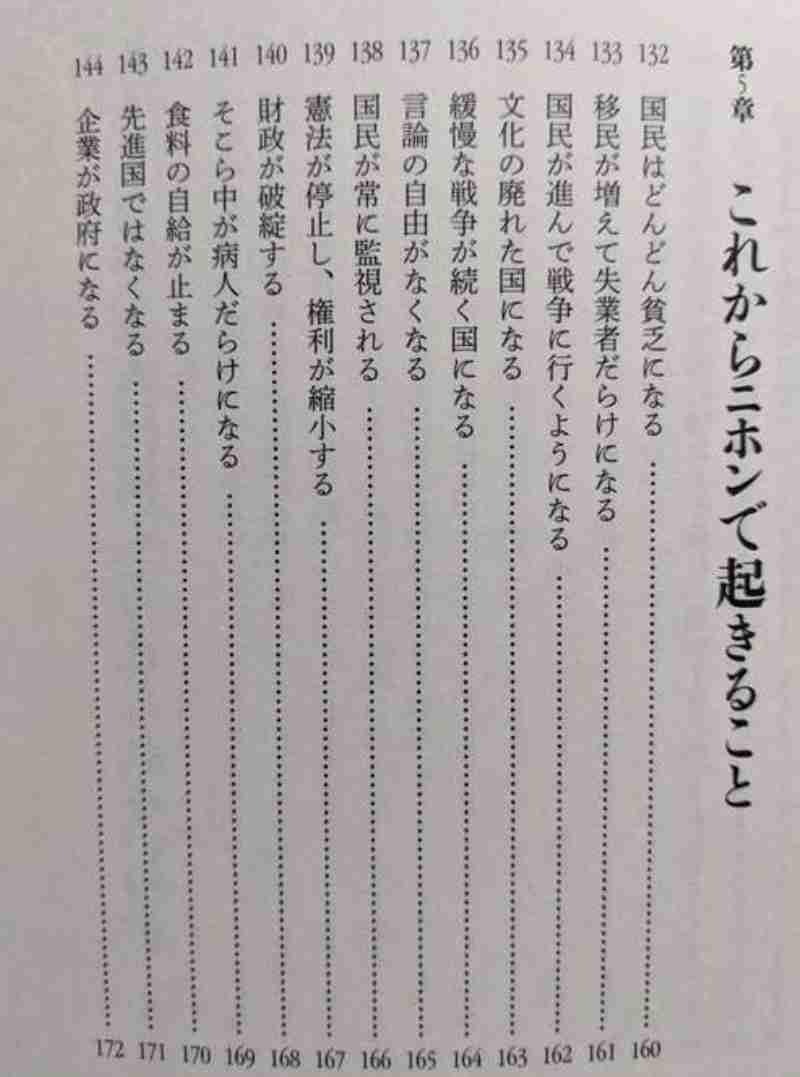 第5章 これからニホンで起きること
132 国民はどんどん貧乏になる……160
133 移民が増えて失業者だらけになる……161
134 国民が進んで戦争に行くようになる……162
135 文化の廃れた国になる……163
136 緩慢な戦争が続く国になる……164
137 言論の自由がなくなる……165
138 国民が常に監視される……166
139 憲法が停止し、権利が縮小する……167
140 財政が破綻する……168
141 そこら中が病人だらけになる……169
142 食料の自給が止まる……170
143 先進国ではなくなる……171
144 企業が政府になる……172